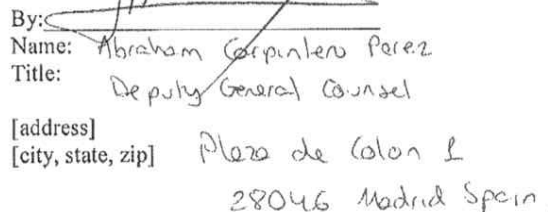 By:
Name: Abraham Carpintero Perez
Title:
Deputy General Counsel
[address]
[city, state, zip] Plaza de Colon 1
28046 Madrid Spain